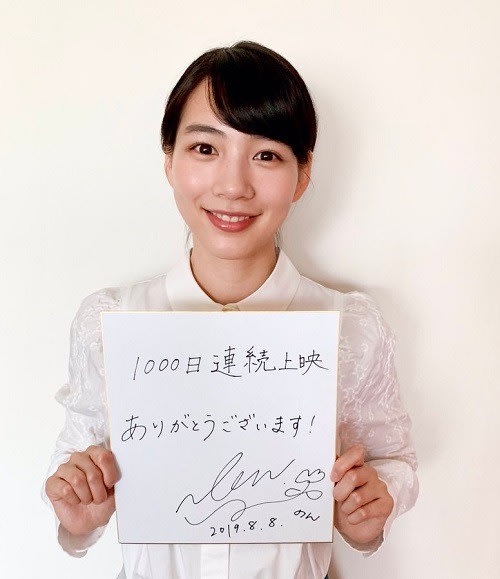 1000日連続上映
ありがとうございます!
のん
2019.8.8.